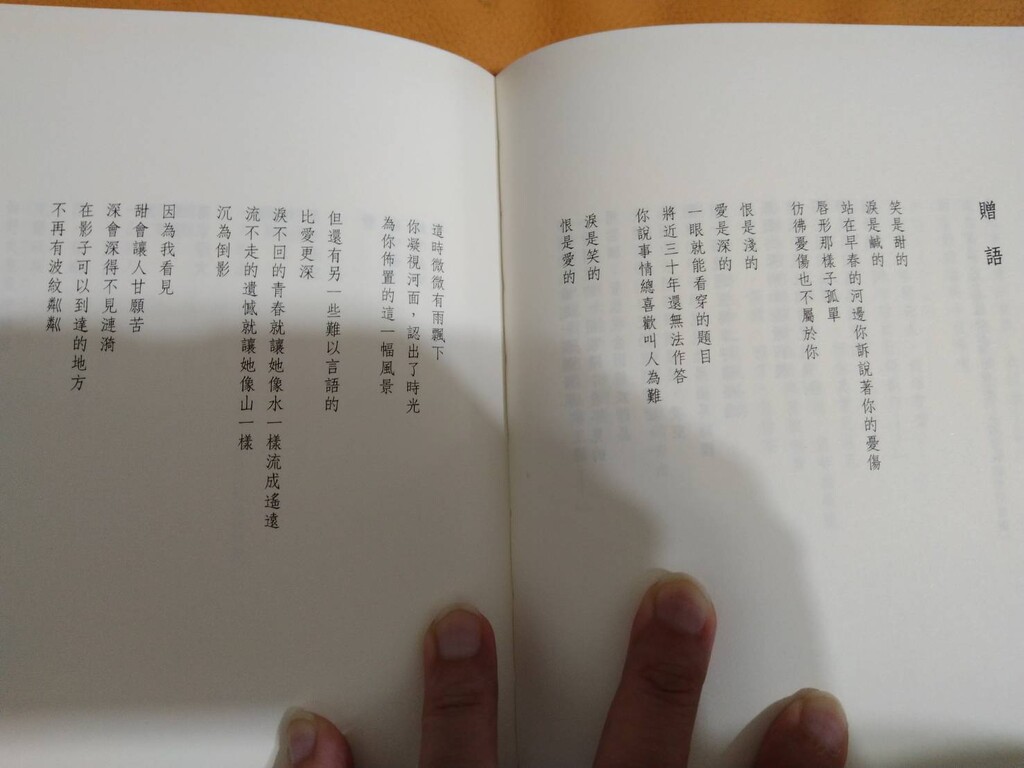 贈語
笑是甜的
淚是鹹的
站在早春的河邊你訴說著你的憂傷
唇形那樣子孤單
彷彿憂傷也不屬於你
恨是淺的
愛是深的
一眼就能看穿的題目
將近三十年還無法作答
你說事情總喜歡叫人為難
淚是笑的
恨是愛的
這時微微有雨飄下
你凝視河面，認出了時光
為你佈置的這一幅風景
但還有另一些難以言語的
比愛更深
淚不回的青春就讓她像水一樣流成遙遠
流不走的遺憾就讓她像山一樣
沉為倒影
因為我看見
甜會讓人甘願苦
深會深得不見漣漪
在影子可以到達的地方
不再有波紋粼粼